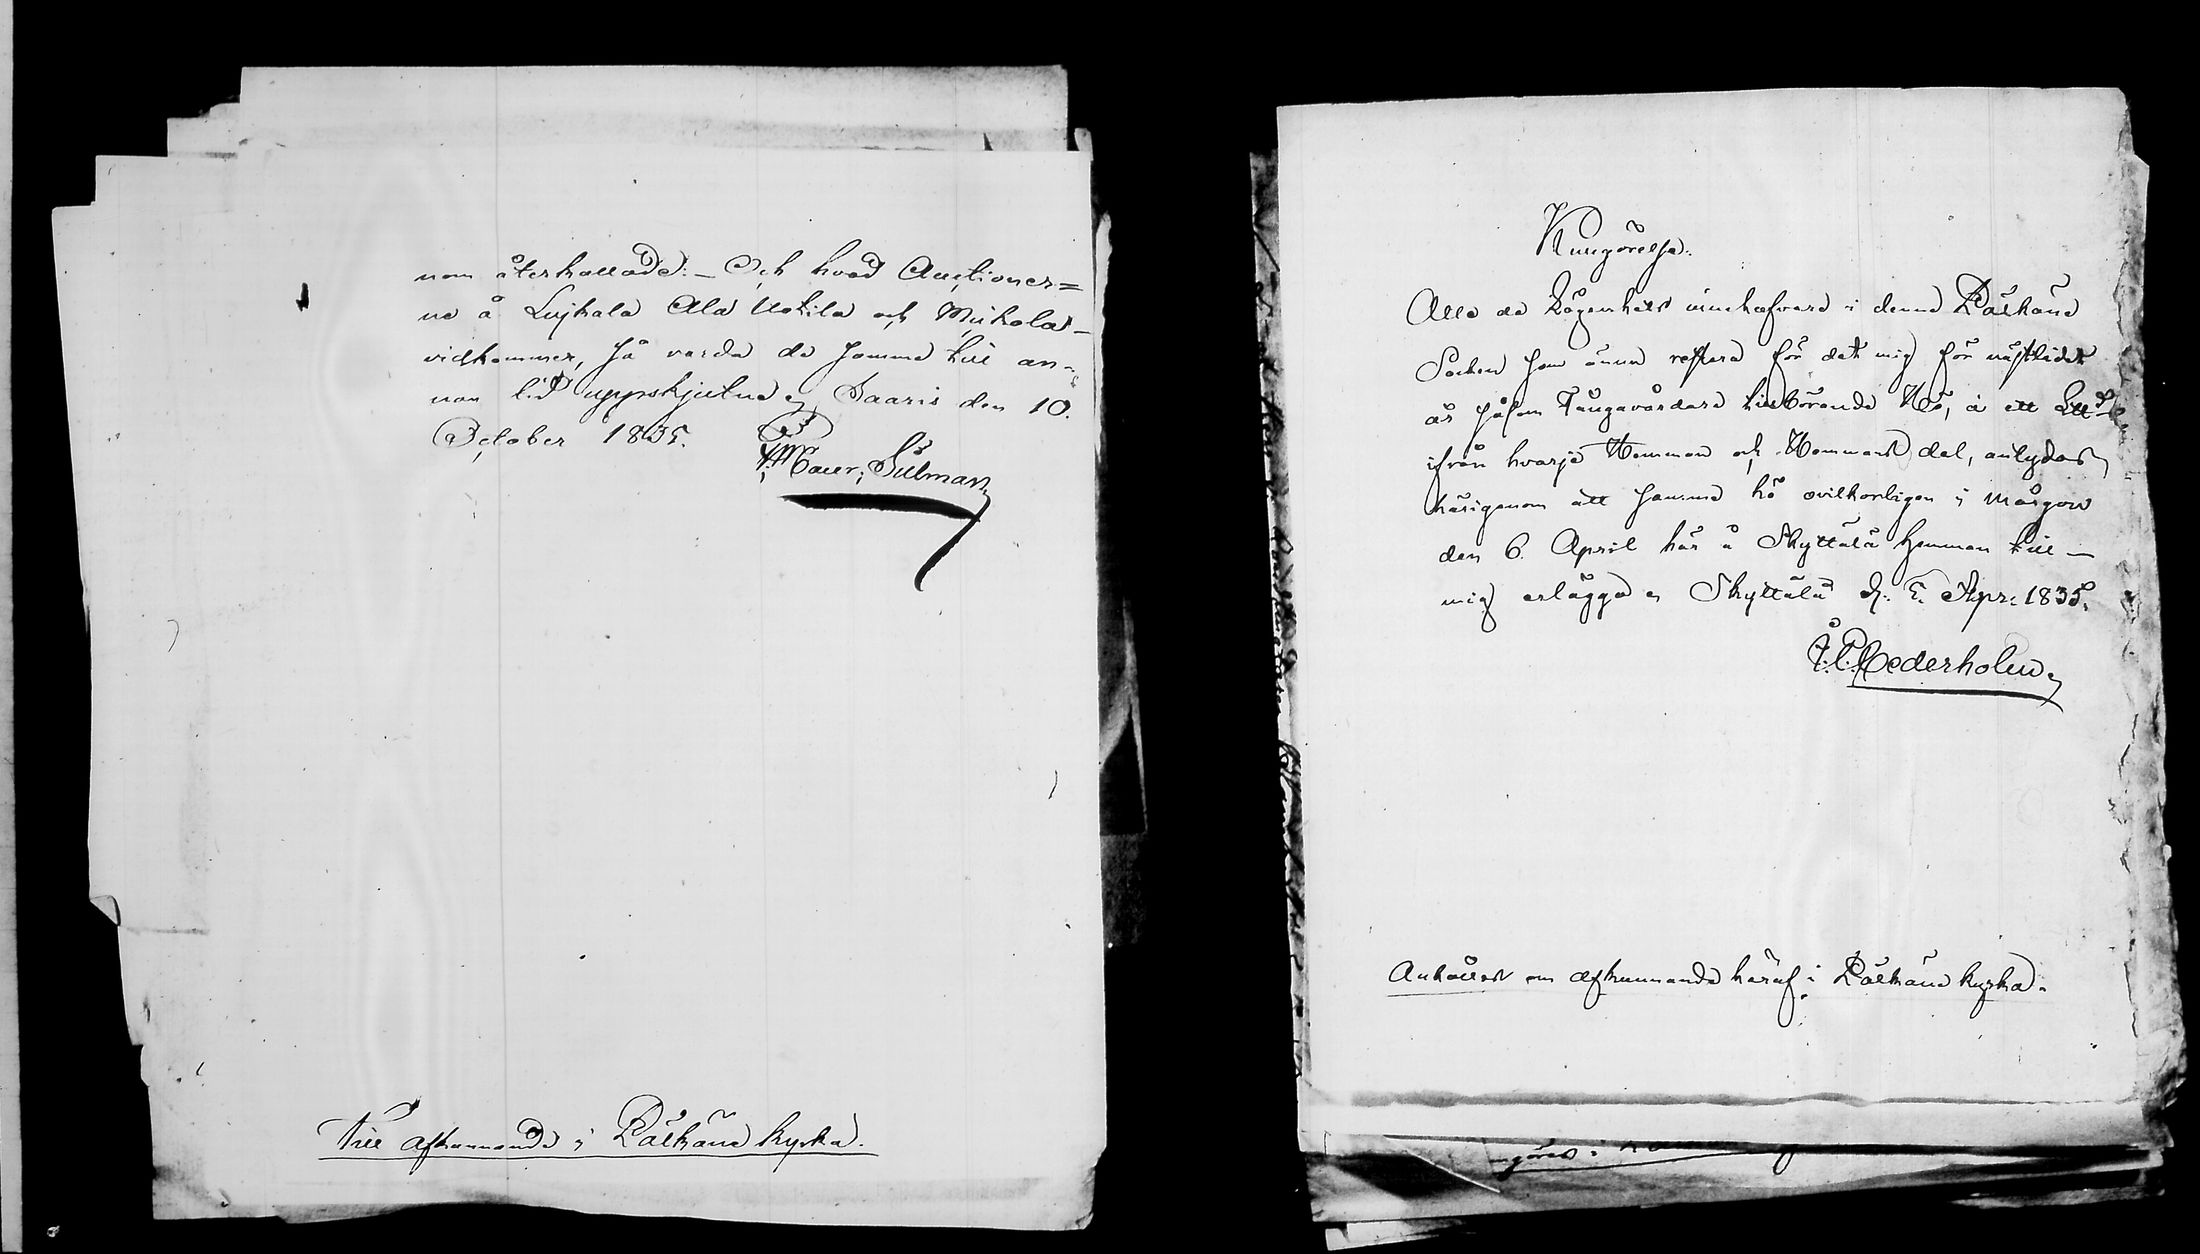 nom återkallade: – Och hvad Auctioner=
na å Lujkala Ala Uotila och Mickola –
vidkommer, så varda de samma till an=
nan tid uppskjutne, Saaris den 10.
October 1835.
Maur: Silman
Till afkunnande i Pälkäne kyrka.
Kungörelse.
Alla de Lägenhets innehafvare i denna Pälkäne
Socken som ännu restera för det mig för nästledet
år såsom Fångavårdare tillkörande Hö, à ett Lld
ifrån hvarje Hemman och Hemmans del, antydas
härigenom att samma hö ovilkorligen i morgon
den 6. April här å Skyttälä hemman till –
mig erlägga, Skyttälä d: 5. Apr: 1835.
Cederholm
Anhålles om afkunnande häraf i Pälkäne kyrka.